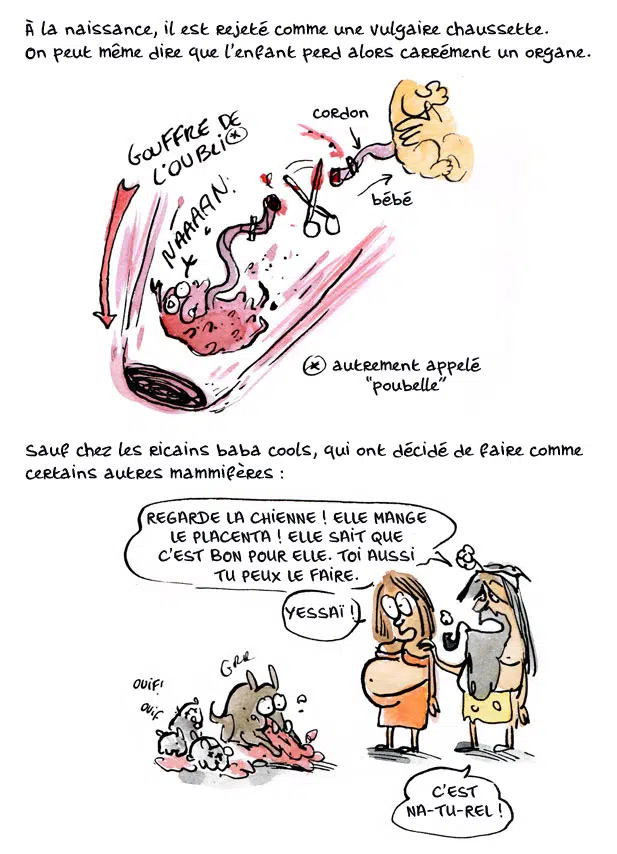 À la naissance, il est rejeté comme une vulgaire chaussette.
On peut même dire que l'enfant perd alors carrément un organe.
GOUFFRE DE
L'OUBLI *
NAAAAN!
cordon
bébé
* autrement appelé
"poubelle"
Sauf chez les ricains baba cools, qui ont décidé de faire comme
certains autres mammifères :
REGARDE LA CHIENNE ! ELLE MANGE
LE PLACENTA ! ELLE SAIT QUE
C'EST BON POUR ELLE. TOI AUSSI
TU PEUX LE FAIRE.
YESSAÏ !
GRR
OUIF!
OUIF
C'EST
NA-TU-REL !